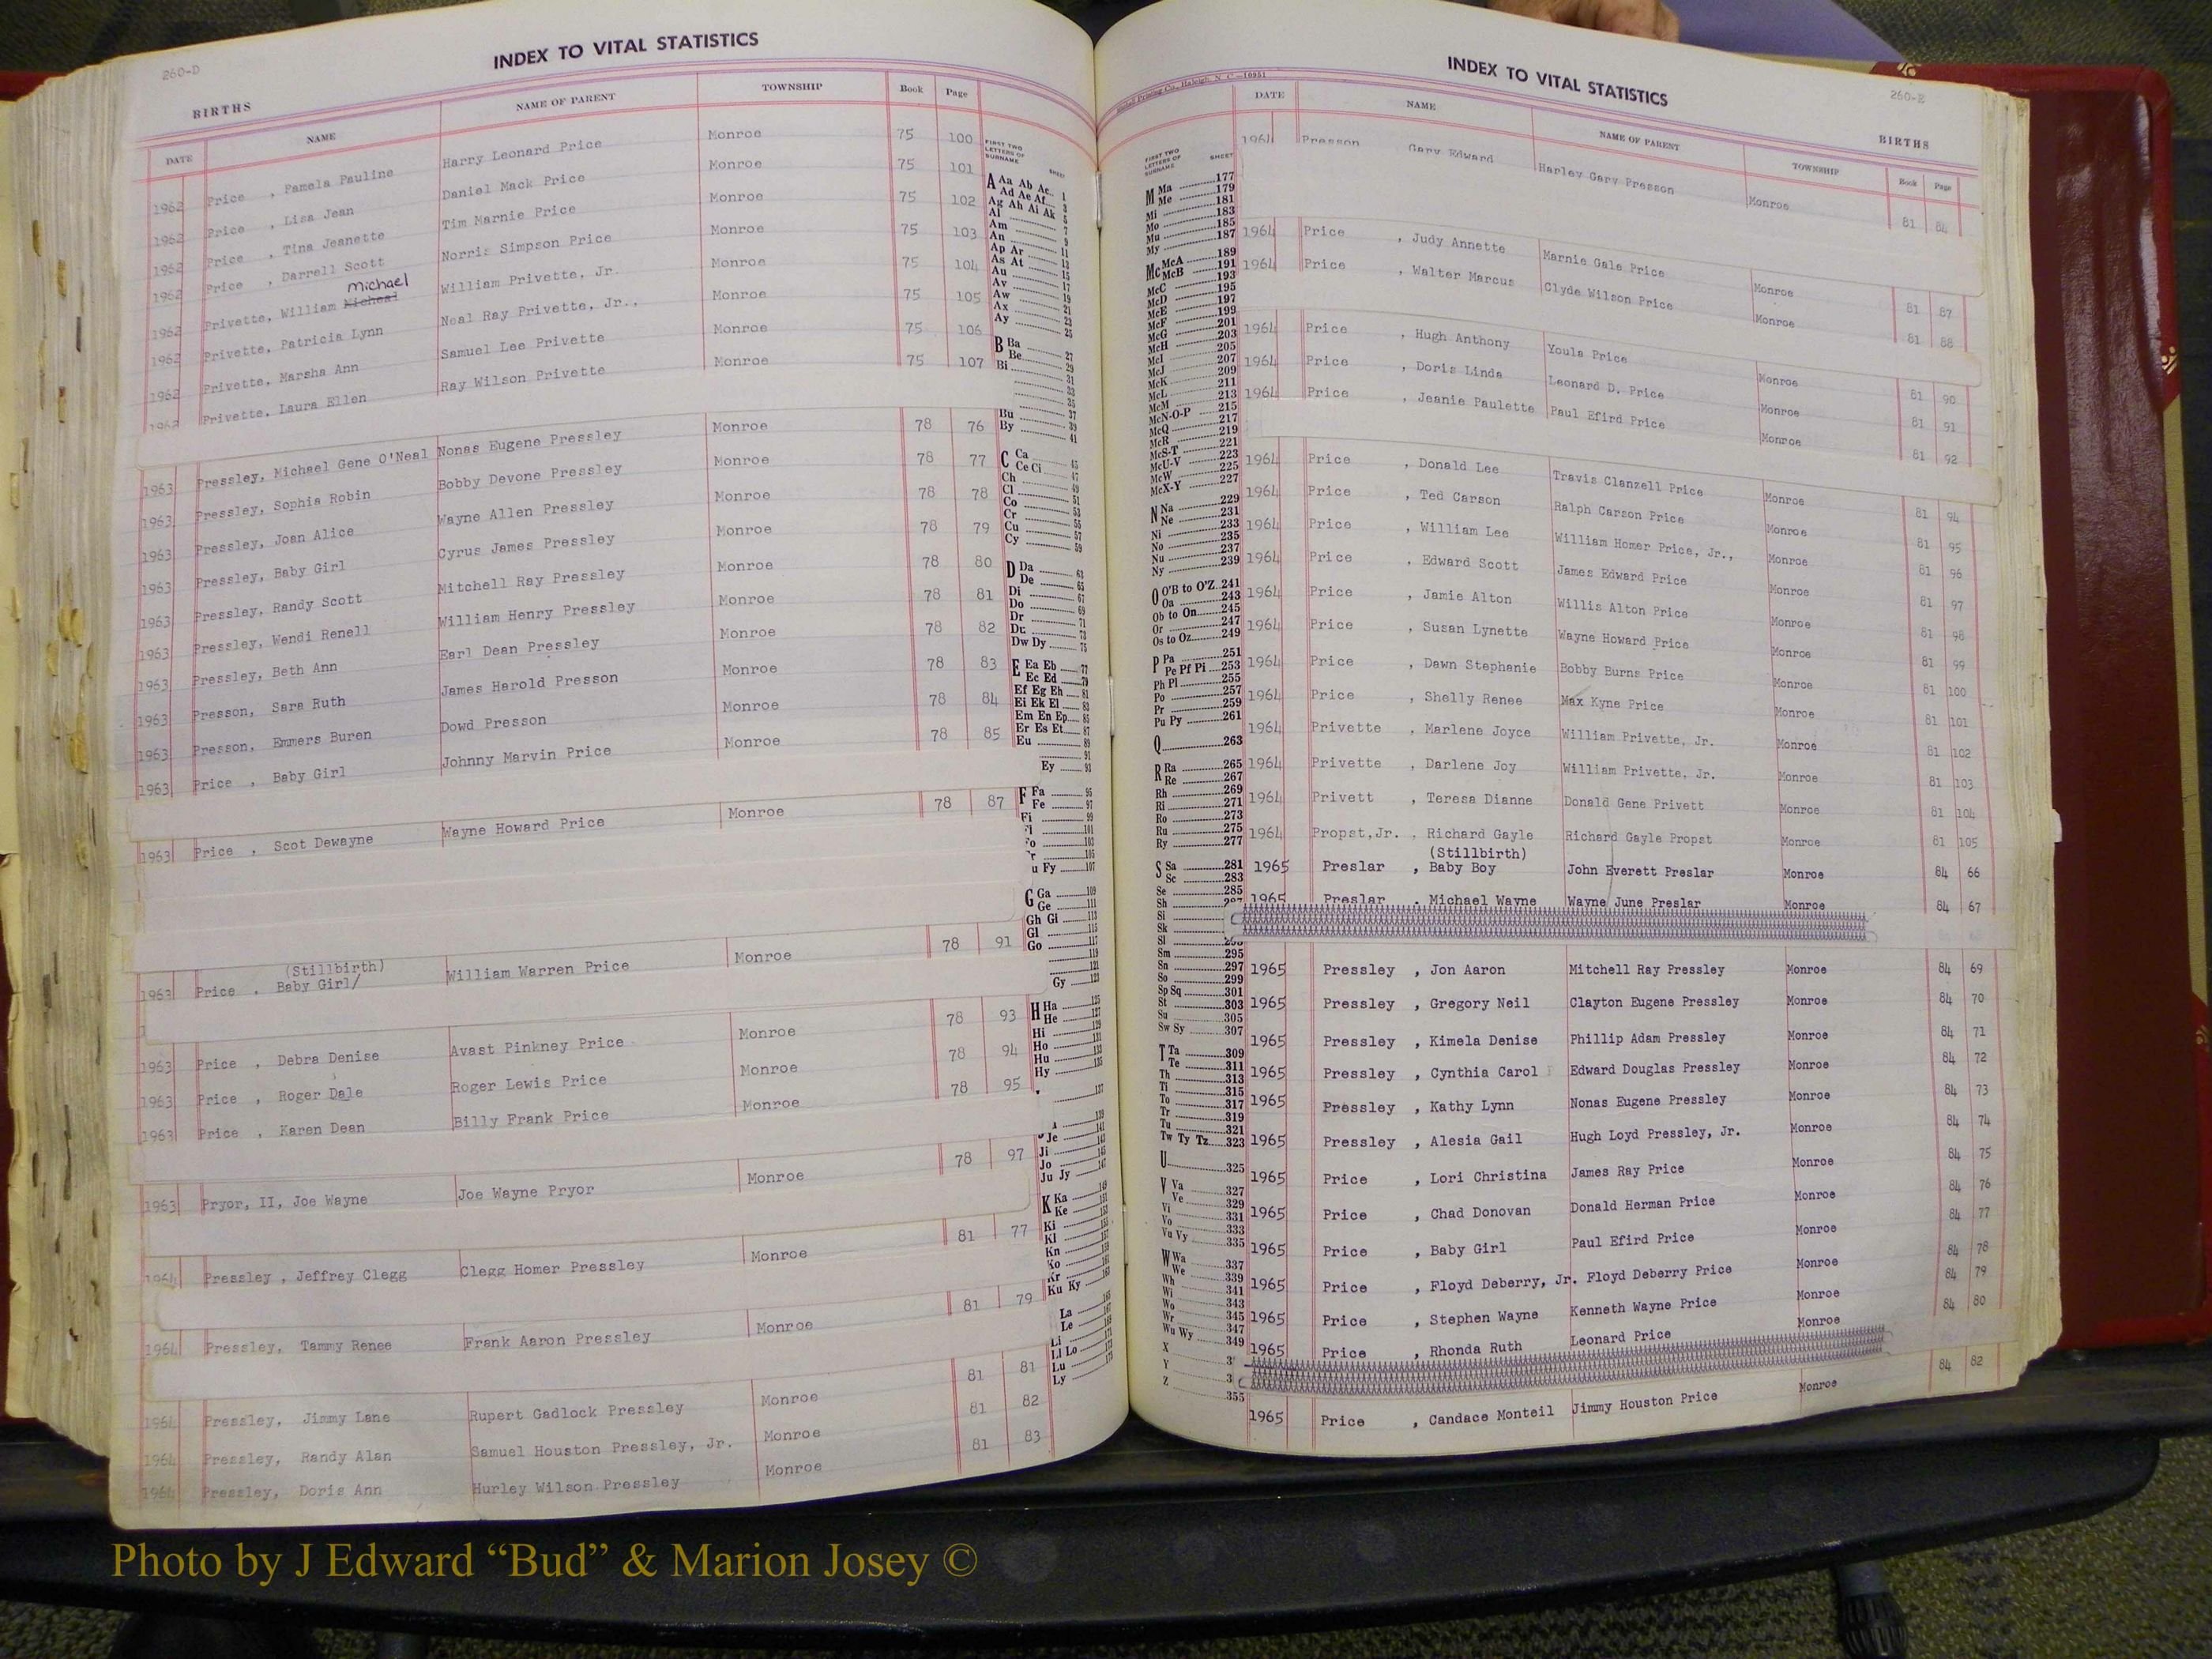 260-D
INDEX TO VITAL STATISTICS
BIRTHS
DATE NAME NAME OF PARENT TOWNSHIP Book Page
1962 Price , Pamela Pauline Harry Leonard Price Monroe 75 100
1962 Price , Lisa Jean Daniel Mack Price Monroe 75 101
1962 Price , Tina Jeanette Tim Marnie Price Monroe 75 102
1962 Price , Darrell Scott Norris Simpson Price Monroe 75 103
Michael
1962 Privette, William Micheal William Privette, Jr. Monroe 75 104
1962 Privette, Patricia Lynn Neal Ray Privette, Jr., Monroe 75 105
1962 Privette, Marsha Ann Samuel Lee Privette Monroe 75 106
1962 Privette, Laura Ellen Ray Wilson Privette Monroe 75 107
1963 Pressley, Michael Gene O'Neal Nonas Eugene Pressley Monroe 78 76
1963 Pressley, Sophia Robin Bobby Devone Pressley Monroe 78 77
1963 Pressley, Joan Alice Wayne Allen Pressley Monroe 78 78
1963 Pressley, Baby Girl Cyrus James Pressley Monroe 78 79
1963 Pressley, Randy Scott Mitchell Ray Pressley Monroe 78 80
1963 Pressley, Wendi Renell William Henry Pressley Monroe 78 81
1963 Pressley, Beth Ann Earl Dean Pressley Monroe 78 82
1963 Presson, Sara Ruth James Harold Presson Monroe 78 83
1963 Presson, Emmers Buren Dowd Presson Monroe 78 84
1963 Price , Baby Girl Johnny Marvin Price Monroe 78 85
1963 Price , Scot Dewayne Wayne Howard Price Monroe 78 87
(Stillbirth)
1963 Price , Baby Girl/ William Warren Price Monroe 78 91
1963 Price , Debra Denise Avast Pinkney Price Monroe 78 93
1963 Price , Roger Dale Roger Lewis Price Monroe 78 94
1963 Price , Karen Dean Billy Frank Price Monroe 78 95
1963 Pryor, II, Joe Wayne Joe Wayne Pryor Monroe 78 97
1964 Pressley , Jeffrey Clegg Clegg Homer Pressley Monroe 81 77
1964 Pressley, Tammy Renee Frank Aaron Pressley Monroe 81 79
1964 Pressley, Jimmy Lane Rupert Gadlock Pressley Monroe 81 81
1964 Pressley, Randy Alan Samuel Houston Pressley, Jr. Monroe 81 82
1964 Pressley, Doris Ann Hurley Wilson Pressley Monroe 81 83
FIRST TWO
LETTERS OF
SURNAME SHEET
A Aa Ab Ac 1
Ad Ae Af 3
Ag Ah Ai Ak 5
Al 7
Am 9
An 11
Ap Ar 13
As At 15
Au 17
Av 19
Aw 21
Ax 23
Ay 25
B Ba 27
Be 29
Bi 31
33
35
Bu 37
By 39
41
C Ca 45
Ce Ci 47
Ch 49
Cl 51
Co 53
Cr 55
Cu 57
Cy 59
D Da 63
De 65
Di 67
Do 69
Dr 71
Du 73
Dw Dy 75
E Ea Eb 77
Ec Ed 79
Ef Eg Eh 81
Ei Ek El 83
Em En Ep 85
Er Es Et 87
Eu 89
91
Ey 93
F Fa 95
Fe 97
Fi 99
101
103
105
u Fy 107
G Ga 109
Ge 111
Gh Gi 113
Gl 115
Go 117
119
121
Gy 123
H Ha 125
He 127
Hi 129
Ho 131
Hu 133
Hy 135
137
139
Je 141
Ji 143
Jo 145
Ju Jy 147
K Ka 149
Ke 151
Ki
Kl
Kn
Ko
Kr
Ku Ky
La
Le
Li
Ll Lo
Lu
Ly
INDEX TO VITAL STATISTICS
260-E
BIRTHS
DATE NAME NAME OF PARENT TOWNSHIP Book Page
FIRST TWO
LETTERS OF
SURNAME SHEET
M Ma 177
Me 179
Mi 181
Mo 183
Mu 185
My 187
Mc McA 189
McB 191
McC 193
McD 195
McE 197
McF 199
McG 201
McH 203
McI 205
McJ 207
McK 209
McL 211
McM 213
McN-O-P 215
McQ 217
McR 219
McS-T 221
McU-V 223
McW 225
McX-Y 227
N Na 229
Ne 231
Ni 233
No 235
Nu 237
Ny 239
O O'B to O'Z 241
Oa 243
Ob to On 245
Or 247
Os to Oz 249
P Pa 251
Pe Pf Pi 253
Ph Pl 255
Po 257
Pr 259
Pu Py 261
Q 263
R Ra 265
Re 267
Rh 269
Ri 271
Ro 273
Ru 275
Ry 277
S Sa 281
Sc 283
Se 285
Sh
Si
Sk
Sl
Sm 295
Sn 297
So 299
Sp Sq 301
St 303
Su 305
Sw Sy 307
T Ta 309
Te 311
Th 313
Ti 315
To 317
Tr 319
Tu 321
Tw Ty Tz 323
U 325
V Va 327
Ve 329
Vi 331
Vo 333
Vu Vy 335
W Wa 337
We 339
Wh 341
Wi 343
Wo 345
Wr 347
Wu Wy 349
X
Y
Z 355
1964 Presson Gary Edward Harley Gary Presson Monroe 81 84
1964 Price , Judy Annette Marnie Gale Price Monroe 81 87
1964 Price , Walter Marcus Clyde Wilson Price Monroe 81 88
1964 Price , Hugh Anthony Youla Price Monroe 81 90
1964 Price , Doris Linda Leonard D. Price Monroe 81 91
1964 Price , Jeanie Paulette Paul Efird Price Monroe 81 92
1964 Price , Donald Lee Travis Clanzell Price Monroe 81 94
1964 Price , Ted Carson Ralph Carson Price Monroe 81 95
1964 Price , William Lee William Homer Price, Jr., Monroe 81 96
1964 Price , Edward Scott James Edward Price Monroe 81 97
1964 Price , Jamie Alton Willis Alton Price Monroe 81 98
1964 Price , Susan Lynette Wayne Howard Price Monroe 81 99
1964 Price , Dawn Stephanie Bobby Burns Price Monroe 81 100
1964 Price , Shelly Renee Max Kyne Price Monroe 81 101
1964 Privette , Marlene Joyce William Privette, Jr. Monroe 81 102
1964 Privette , Darlene Joy William Privette, Jr. Monroe 81 103
1964 Privett , Teresa Dianne Donald Gene Privett Monroe 81 104
1964 Propst,Jr. , Richard Gayle Richard Gayle Propst Monroe 81 105
(Stillbirth)
1965 Preslar , Baby Boy John Everett Preslar Monroe 84 66
1965 Preslar , Michael Wayne Wayne June Preslar Monroe 84 67
1965 Pressley , Jon Aaron Mitchell Ray Pressley Monroe 84 69
1965 Pressley , Gregory Neil Clayton Eugene Pressley Monroe 84 70
1965 Pressley , Kimela Denise Phillip Adam Pressley Monroe 84 71
1965 Pressley , Cynthia Carol Edward Douglas Pressley Monroe 84 72
1965 Pressley , Kathy Lynn Nonas Eugene Pressley Monroe 84 73
1965 Pressley , Alesia Gail Hugh Loyd Pressley, Jr. Monroe 84 74
1965 Price , Lori Christina James Ray Price Monroe 84 75
1965 Price , Chad Donovan Donald Herman Price Monroe 84 76
1965 Price , Baby Girl Paul Efird Price Monroe 84 77
1965 Price , Floyd Deberry, Jr. Floyd Deberry Price Monroe 84 78
1965 Price , Stephen Wayne Kenneth Wayne Price Monroe 84 79
1965 Price , Rhonda Ruth Leonard Price Monroe 84 80
1965 Price , Candace Monteil Jimmy Houston Price Monroe 84 82
Photo by J Edward “Bud” & Marion Josey ©